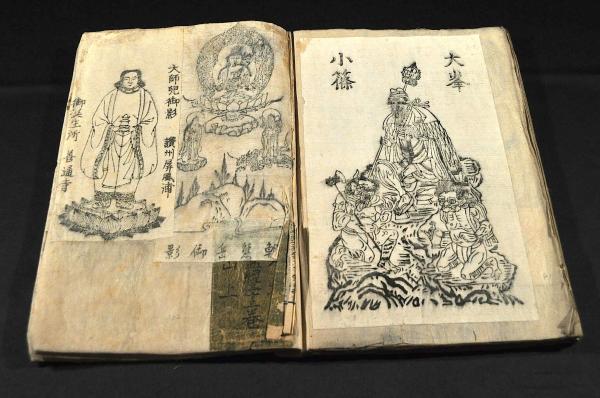 大峯
小篠
讃州屏風浦
大師兒御影
御誕生所 善通寺
岳御影
山上